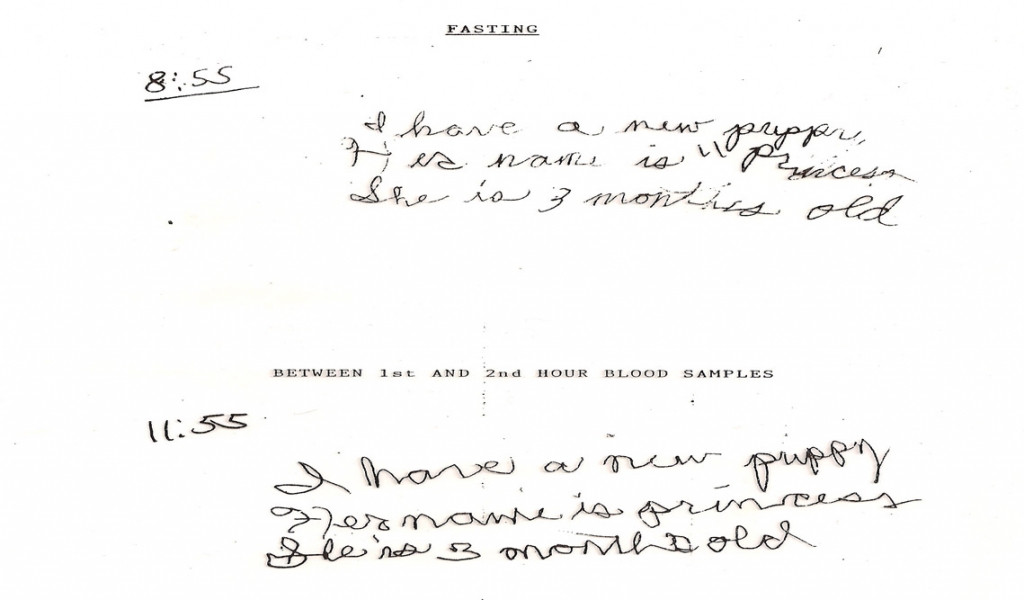 FASTING
8:55
I have a new puppy,
Her name is "Princess
She is 3 months old
BETWEEN 1st AND 2nd HOUR BLOOD SAMPLES
11:55
I have a new puppy
Her name is princess
She is 3 months old